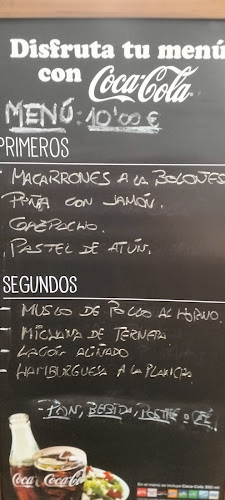 Disfruta tu menú
con Coca-Cola
MENÚ: 10'00 €
PRIMEROS
- MACARRONES A LA BOLOÑES
- PIÑA CON JAMÓN.
- GAZPACHO.
- PASTEL DE ATÚN.
SEGUNDOS
- MUSLO DE POLLO AL HORNO.
- MILANESA DE TERNERA
- LACÓN ALIÑADO
- HAMBURGUESA A LA PLANCHA
- PAN, BEBIDA, POSTRE o CFÉ.
Coca-Cola
En el menú se incluye Coca-Cola 350 ml